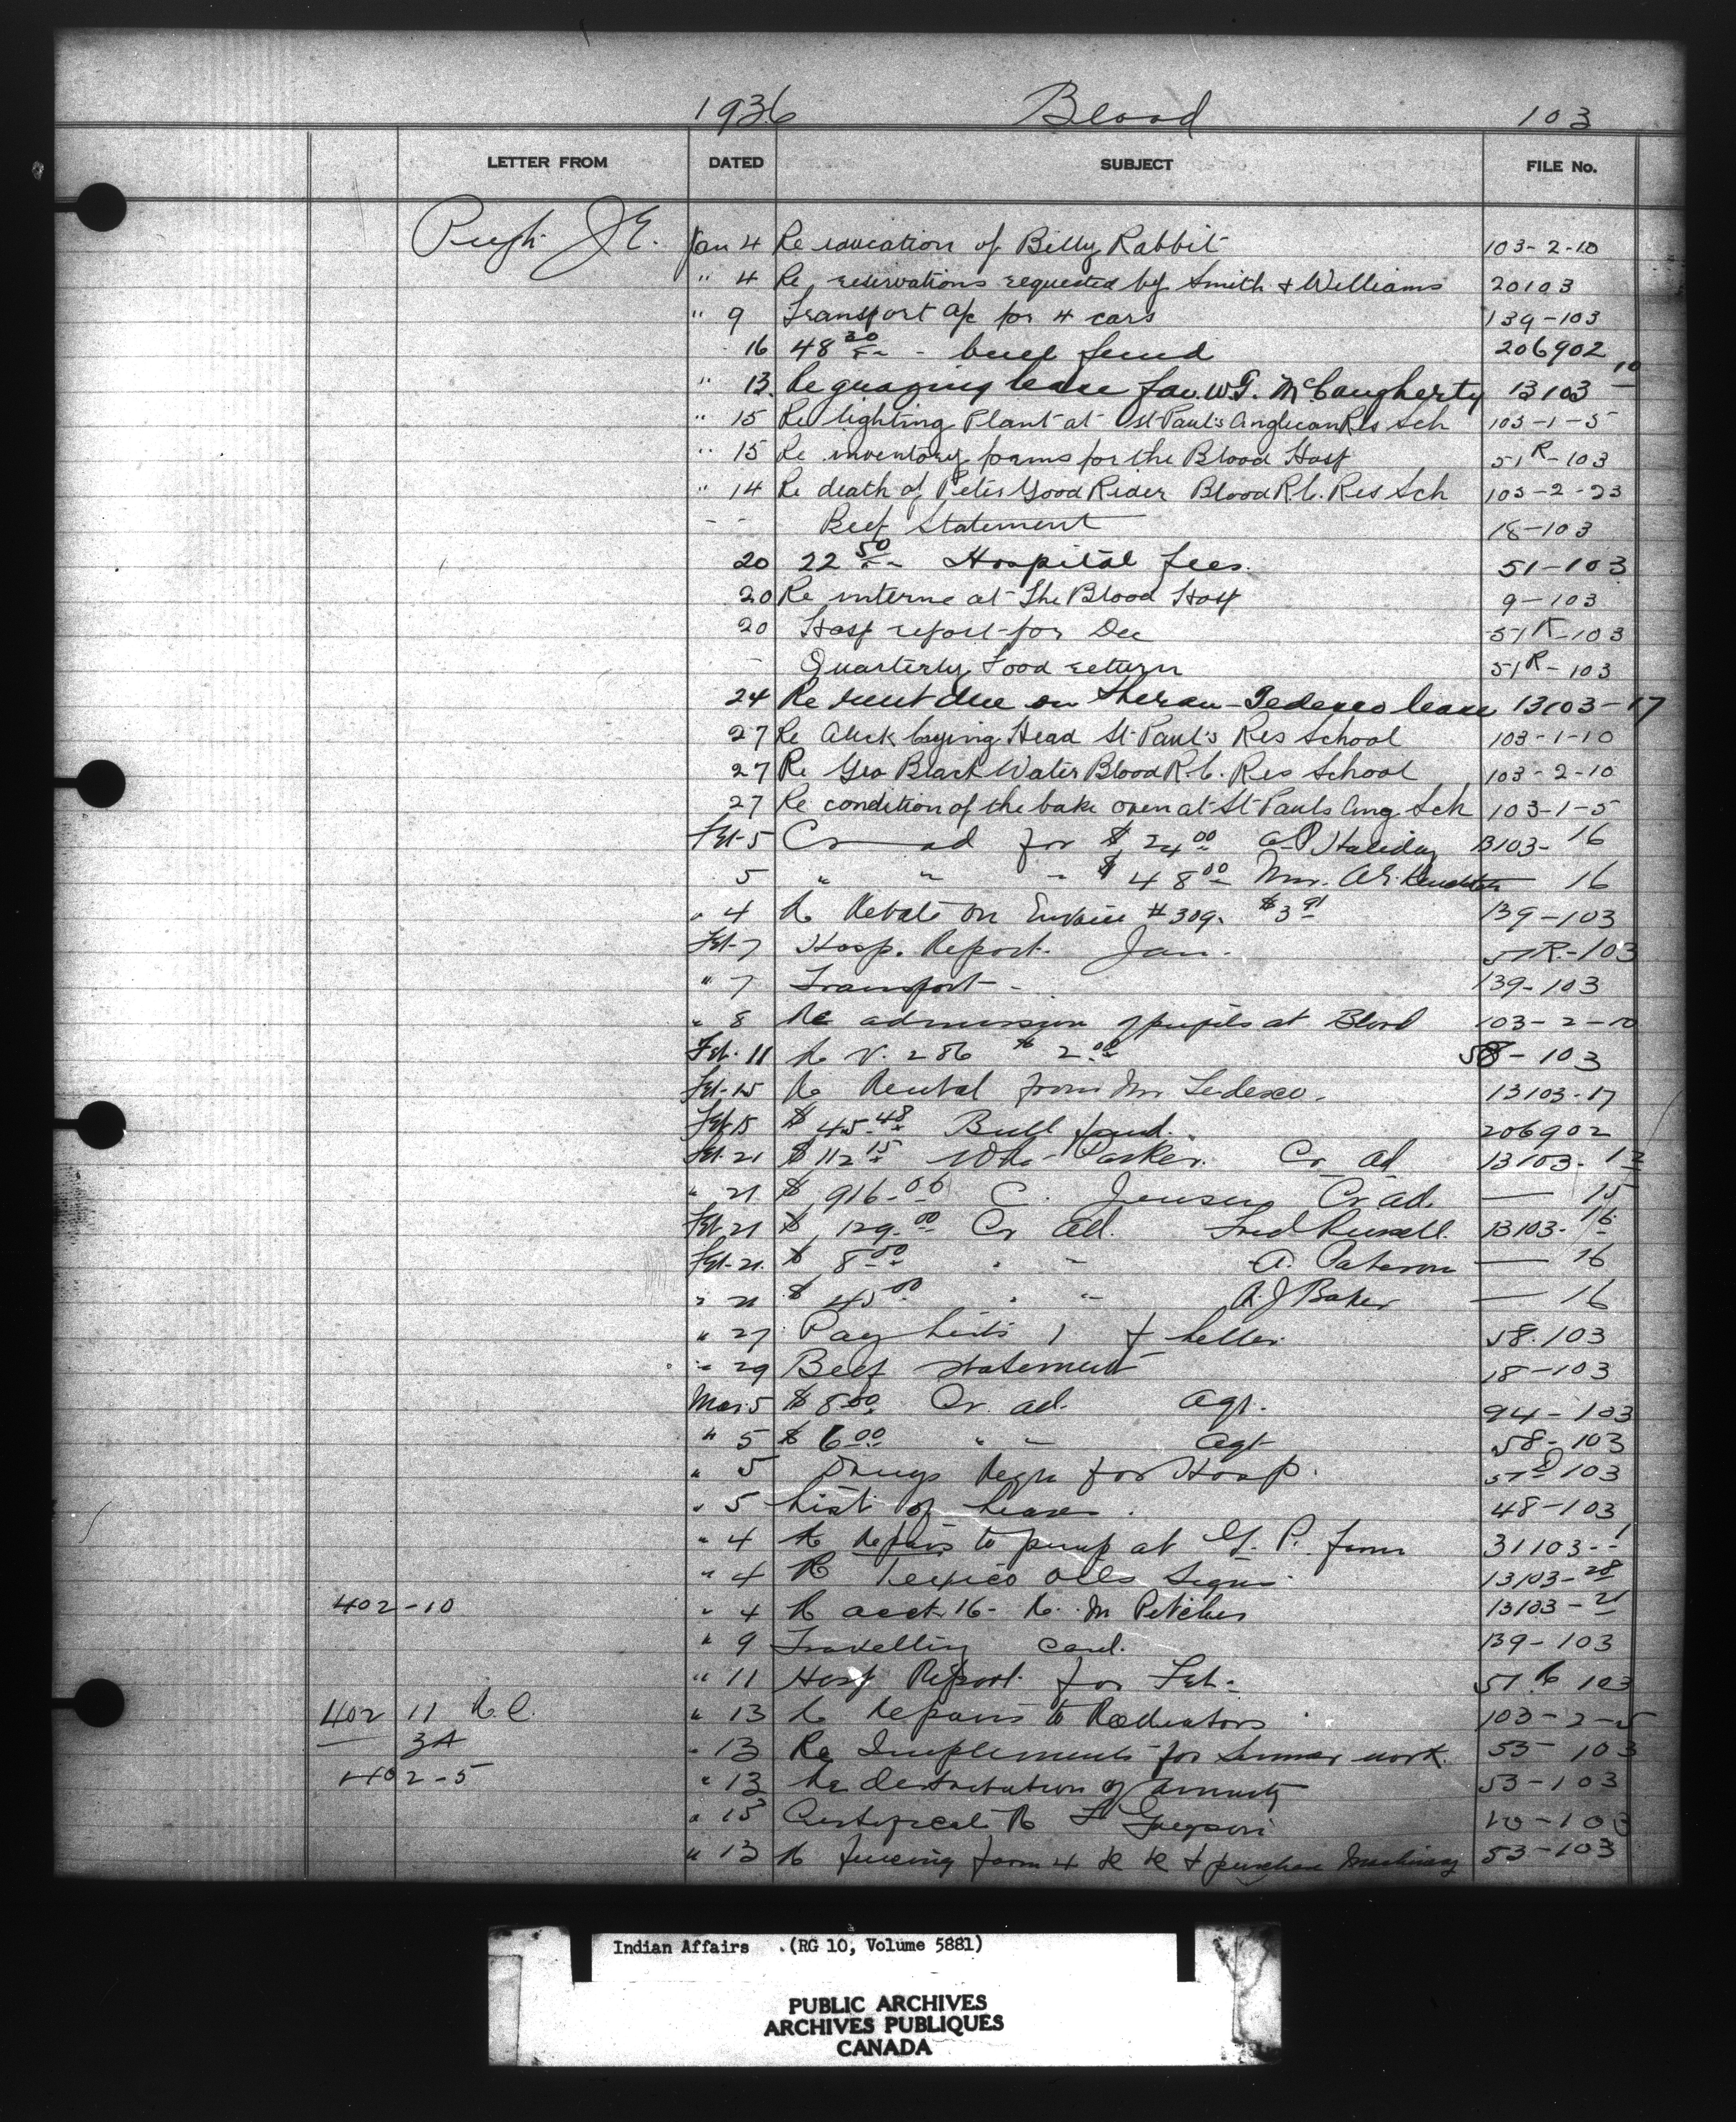 1936 Blood 103
LETTER FROM DATED SUBJECT FILE No.
Pugh J E. Jan 4 Re education of Billy Rabbit 103-2-10
" 4 Re reservations requested by Smith & Williams 20103
" 9 Transport a/c for 4 cars 139-103
16 48 30 - bull fund 206902
" 13. Re grazing lease fav. W.G. McCaugherty 13103 - 10
" 15 Re lighting Plant at St Paul's Anglican Res Sch 103-1-5
" 15 Re inventory forms for the Blood Hosp 51R-103
" 14 Re death of Peter Good Rider Blood R.C. Res Sch 103-2-23
- - Beef Statement 18-103
20 22 50 Hospital fees. 51-103
20 Re interne at The Blood Hosp 9-103
20 Hosp report for Dec 51R-103
- Quarterly Food return 51R-103
24 Re rent due on Theran-Tedesco lease 13103-17
27 Re Alick Crying Head St Paul's Res School 103-1-10
27 Re Geo Black Water Blood R.C. Res School 103-2-10
27 Re condition of the bake oven at St Pauls Ang Sch 103-1-5
Feb-5 Cr ad for $ 24 00 Haliday 13103- 16
5 " " " $ 48 00 16
" 4 Re Rebate on #309. $3 91 139-103
Feb-7 Hosp. Report. Jan. 51R-103
" 7 Transport - 139-103
" 8 Re admission of pupils at Blood 103-2-10
Feb. 11 Re V. 286 $ 2.00 58-103
Feb-15 Re Rental from Mr Tedesco. 13103-17
Feb-15 $ 45.48 Bull fund. 206902
Feb. 21 $ 112 15 Wm Parker. Cr ad 13103-12
" 21 $ 916.06 C. Jensen Cr ad. — 15
Feb-21 $ 129.00 Cr ad. Fred Russell. 13103-16
Feb-21. $ 8 00 " " A. Paterson — 16
" 21 $ 45 00 " " A.J Baker — 16
" 27 Pay lists 1 & letter 58.103
" 29 Beef statement 18-103
Mar 5 $ 8.00 Cr. ad. Agt. 94-103
" 5 $ 6 00 " " Agt 58-103
" 5 Drugs Reqn for Hosp. 51D 103
" 5 List of leases. 48-103
" 4 Re Repairs to pump at G. P. farm 31103-1
" 4 Re Oils 13103-28
402-10 " 4 Re acct. 16- M Pitcher 13103-21
" 9 Travelling card. 139-103
" 11 Hosp Report for Feb. 51R 103
402 11 R.C. " 13 Re Repairs to Radiators 103-2-5
3A " 13 Re Implements for Summer work. 53-103
402-5 " 13 Re distribution of annuity 53-103
" 13 Certificate Re 10-103
" 13 Re fencing farm 4 & purchase Machinery 53-103
Indian Affairs (RG 10, Volume 5881)
PUBLIC ARCHIVES
ARCHIVES PUBLIQUES
CANADA